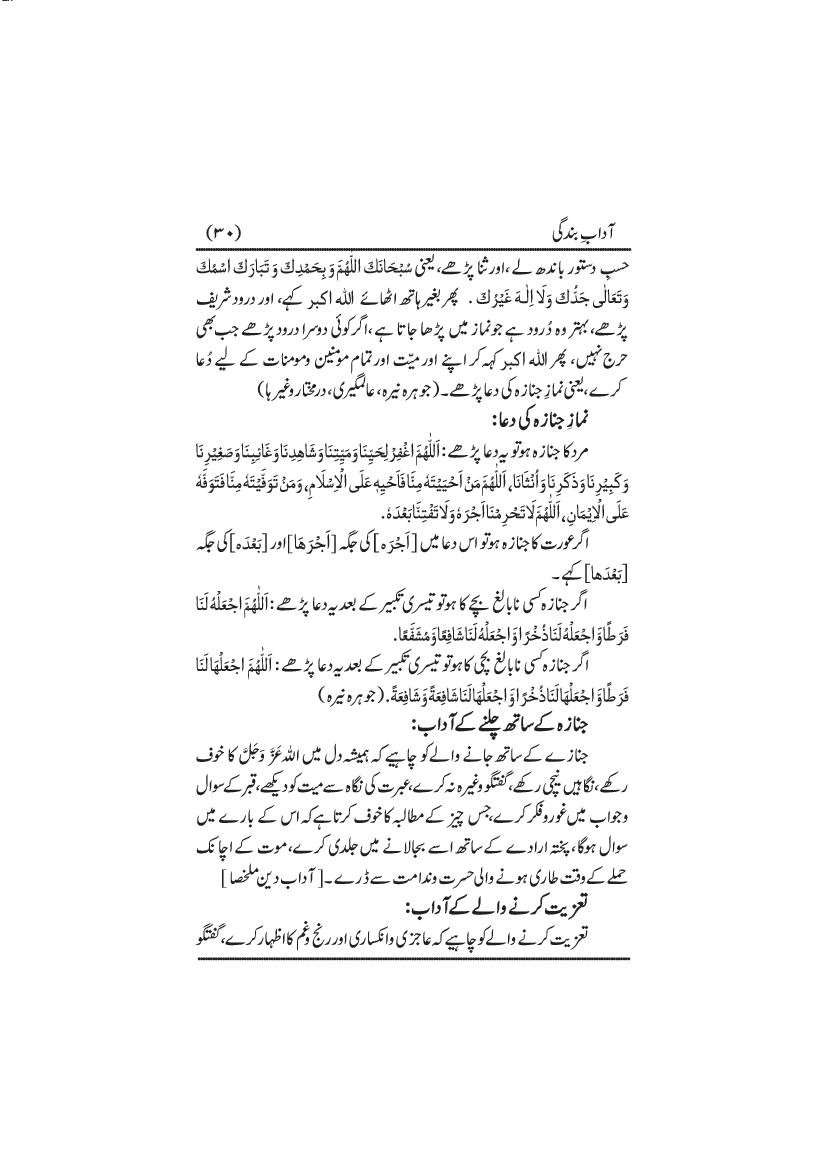 آدابِ بندگی (۳۰)
حسبِ دستور باندھ لے ،اور ثنا پڑھے، یعنی سُبْحَانَكَ اللّٰهُمَّ وَ بِحَمْدِكَ وَ تَبَارَكَ اسْمُكَ
وَتَعَالٰى جَدُّكَ وَلَا اِلٰهَ غَيْرُكَ . پھر بغیر ہاتھ اٹھائے اللہ اکبر کہے، اور درود شریف
پڑھے، بہتر وہ دُرود ہے جو نماز میں پڑھا جاتا ہے ،اگر کوئی دوسرا درود پڑھے جب بھی
حرج نہیں، پھر اللہ اکبر کہہ کر اپنے اور میّت اور تمام مومنین ومومنات کے لیے دُعا
کرے، یعنی نمازِ جنازہ کی دعا پڑھے۔ (جوہرہ نیرہ، عالمگیری، درمختار وغیرہا)
نمازِ جنازہ کی دعا:
مرد کا جنازہ ہو تو یہ دعا پڑھے: اَللّٰهُمَّ اغْفِرْ لِحَيِّنَا وَمَيِّتِنَا وَشَاهِدِنَا وَغَائِبِنَا وَصَغِيْرِنَا
وَكَبِيْرِنَا وَذَكَرِنَا وَاُنْثَانَا، اَللّٰهُمَّ مَنْ اَحْيَيْتَهٗ مِنَّا فَاَحْيِهٖ عَلَى الْاِسْلَامِ، وَمَنْ تَوَفَّيْتَهٗ مِنَّا فَتَوَفَّهٗ
عَلَى الْاِيْمَانِ، اَللّٰهُمَّ لَا تَحْرِمْنَا اَجْرَهٗ وَلَا تَفْتِنَّا بَعْدَهٗ.
اگر عورت کا جنازہ ہو تو اس دعا میں [اَجْرَه] کی جگہ [اَجْرَهَا] اور [بَعْدَه] کی جگہ
[بَعْدَها] کہے۔
اگر جنازہ کسی نابالغ بچے کا ہو تو تیسری تکبیر کے بعد یہ دعا پڑھے: اَللّٰهُمَّ اجْعَلْهُ لَنَا
فَرَطًا وَاجْعَلْهُ لَنَا ذُخْرًا وَاجْعَلْهُ لَنَا شَافِعًا وَمُشَفَّعًا.
اگر جنازہ کسی نابالغ بچی کا ہو تو تیسری تکبیر کے بعد یہ دعا پڑھے: اَللّٰهُمَّ اجْعَلْهَا لَنَا
فَرَطًا وَاجْعَلْهَا لَنَا ذُخْرًا وَاجْعَلْهَا لَنَا شَافِعَةً وَّشَافِعَةً. (جوہرہ نیرہ)
جنازہ کے ساتھ چلنے کے آداب:
جنازے کے ساتھ جانے والے کو چاہیے کہ ہمیشہ دل میں اللہ عَزَّ وَجَلَّ کا خوف
رکھے، نگاہیں نیچی رکھے، گفتگو وغیرہ نہ کرے، عبرت کی نگاہ سے میت کو دیکھے، قبر کے سوال
وجواب میں غور وفکر کرے، جس چیز کے مطالبہ کا خوف کرتا ہے کہ اس کے بارے میں
سوال ہوگا، پختہ ارادے کے ساتھ اسے بجالانے میں جلدی کرے، موت کے اچانک
حملے کے وقت طاری ہونے والی حسرت وندامت سے ڈرے۔ [آداب دین ملخصا]
تعزیت کرنے والے کے آداب:
تعزیت کرنے والے کو چاہیے کہ عاجزی وانکساری اور رنج وغم کا اظہار کرے، گفتگو